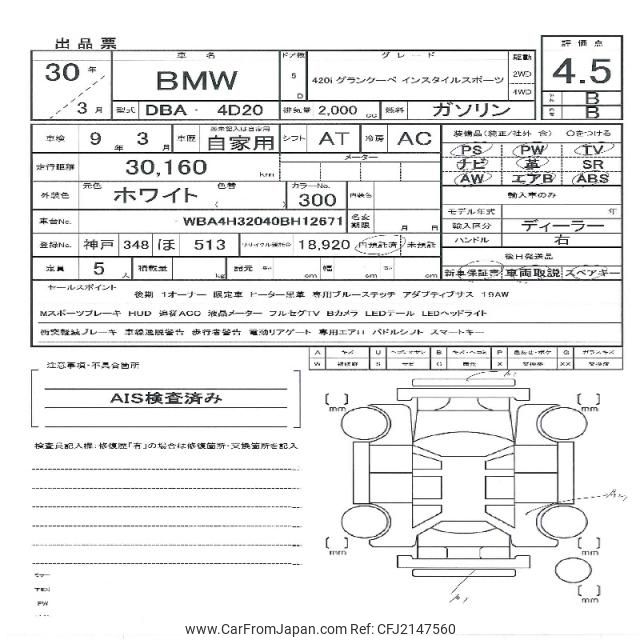 出品票
30 年 3 月
車名 ドア数 グレード 駆動 評価点
BMW 5 D 420i グランクーペ インスタイルスポーツ 2WD 4WD 4.5
型式 DBA - 4D20 排気量 2,000 cc 燃料 ガソリン B B
車検 9 年 3 月 車歴 自家用 シフト AT 冷房 AC
装備品(純正/社外 含) ○をつける
PS PW TV
ナビ 革 SR
AW エアB ABS
走行距離 30,160 km メーター
外装色 元色 ホワイト 色替 ( カラーNo. 300 内装色
輸入車のみ
車台No. WBA4H32040BH12671 名変期限 月 日
モデル年式 年
輸入区分 ディーラー
ハンドル 右
登録No. 神戸 348 ほ 513 リサイクル預託金 18,920 円預託済 未預託
後日発送品
定員 5 人 積載量 kg 諸元 長 cm 幅 cm 高 cm
新車保証書 車両取説 スペアキー
セールスポイント
後期 1オーナー 限定車 ヒーター黒革 専用ブルーステッチ アダプティブサス 19AW
Mスポーツブレーキ HUD 追従ACC 液晶メーター フルセグTV Bカメラ LEDテール LEDヘッドライト
衝突軽減ブレーキ 車線逸脱警告 歩行者警告 電動リアゲート 専用エアロ パドルシフト スマートキー
注意事項・不具合箇所
AIS検査済み
検査員記入欄:修復歴「有」の場合は修復箇所・交換箇所を記入
[ ] mm
[ ] mm
[ ] mm
[ ] mm
[ ] mm
www.CarFromJapan.com Ref: CFJ2147560